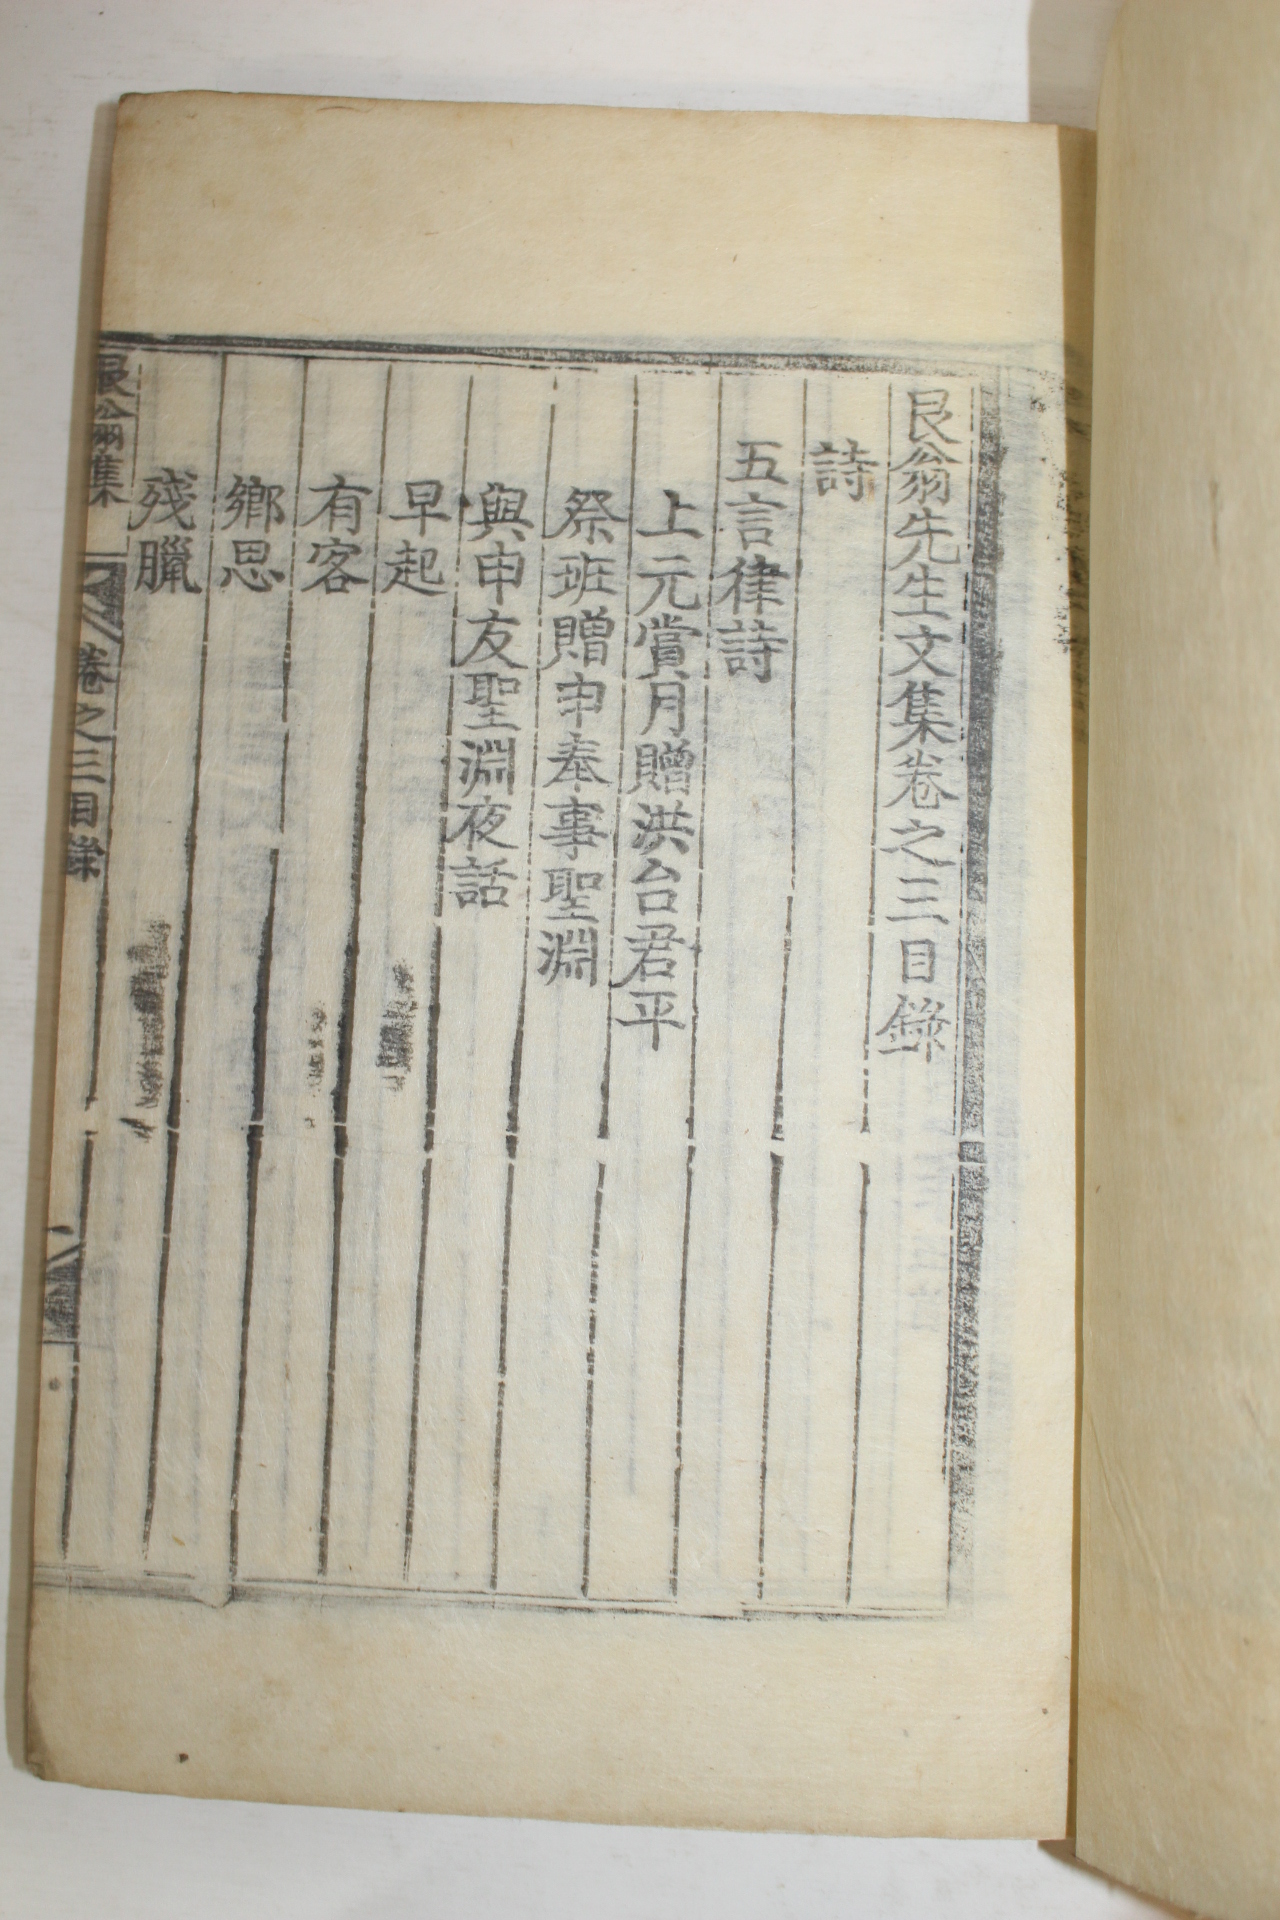 艮翁先生文集卷之三目錄
詩
五言律詩
上元賞月贈洪台君平
祭班贈申奉事聖淵
與申友聖淵夜話
早起
有客
鄉思
殘臘
艮翁集
卷之三目錄